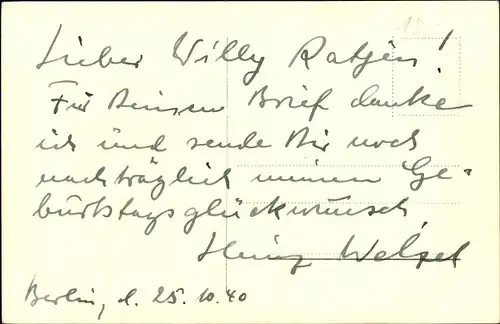 Lieber Willy Ratjen!
Für Deinen Brief danke
ich und sende Dir noch
nachträglich meinen Ge=
burtstagsglückwunsch.
Heinz Welzel
Berlin, d. 25.10.40